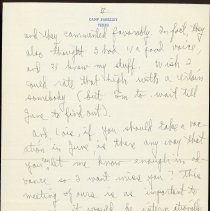 V
CAMP BARKELEY
TEXAS
and they commented favorably. In fact they
also thought I had a good voice
and I knew my stuff. Wish I
could rate that high with a certain
somebody (but I'm to wait till
June to find out).
And Lois, if you should take a vaca-
tion in June is there any way that
you let me know enough in ad-
vance so I wont miss you? This
meeting of ours is as important to
it would be